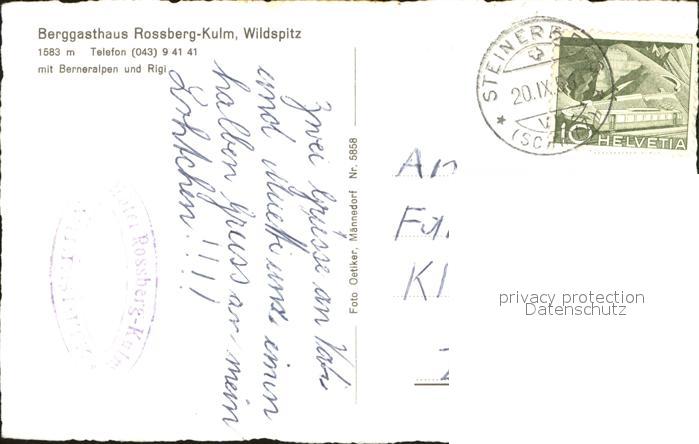 Berggasthaus Rossberg-Kulm, Wildspitz
1583 m Telefon (043) 9 41 41
mit Berneralpen und Rigi
Zwei Grüsse an Vati
und Mueti und einen
halben Gruss an mein
!!!!
Foto Oetiker, Männedorf Nr. 5858
Hotel Rossberg-Kulm
STEINERBERG
20.IX.
(SCHWYZ)
10 HELVETIA
An
Fa
Kl
privacy protection
Datenschutz